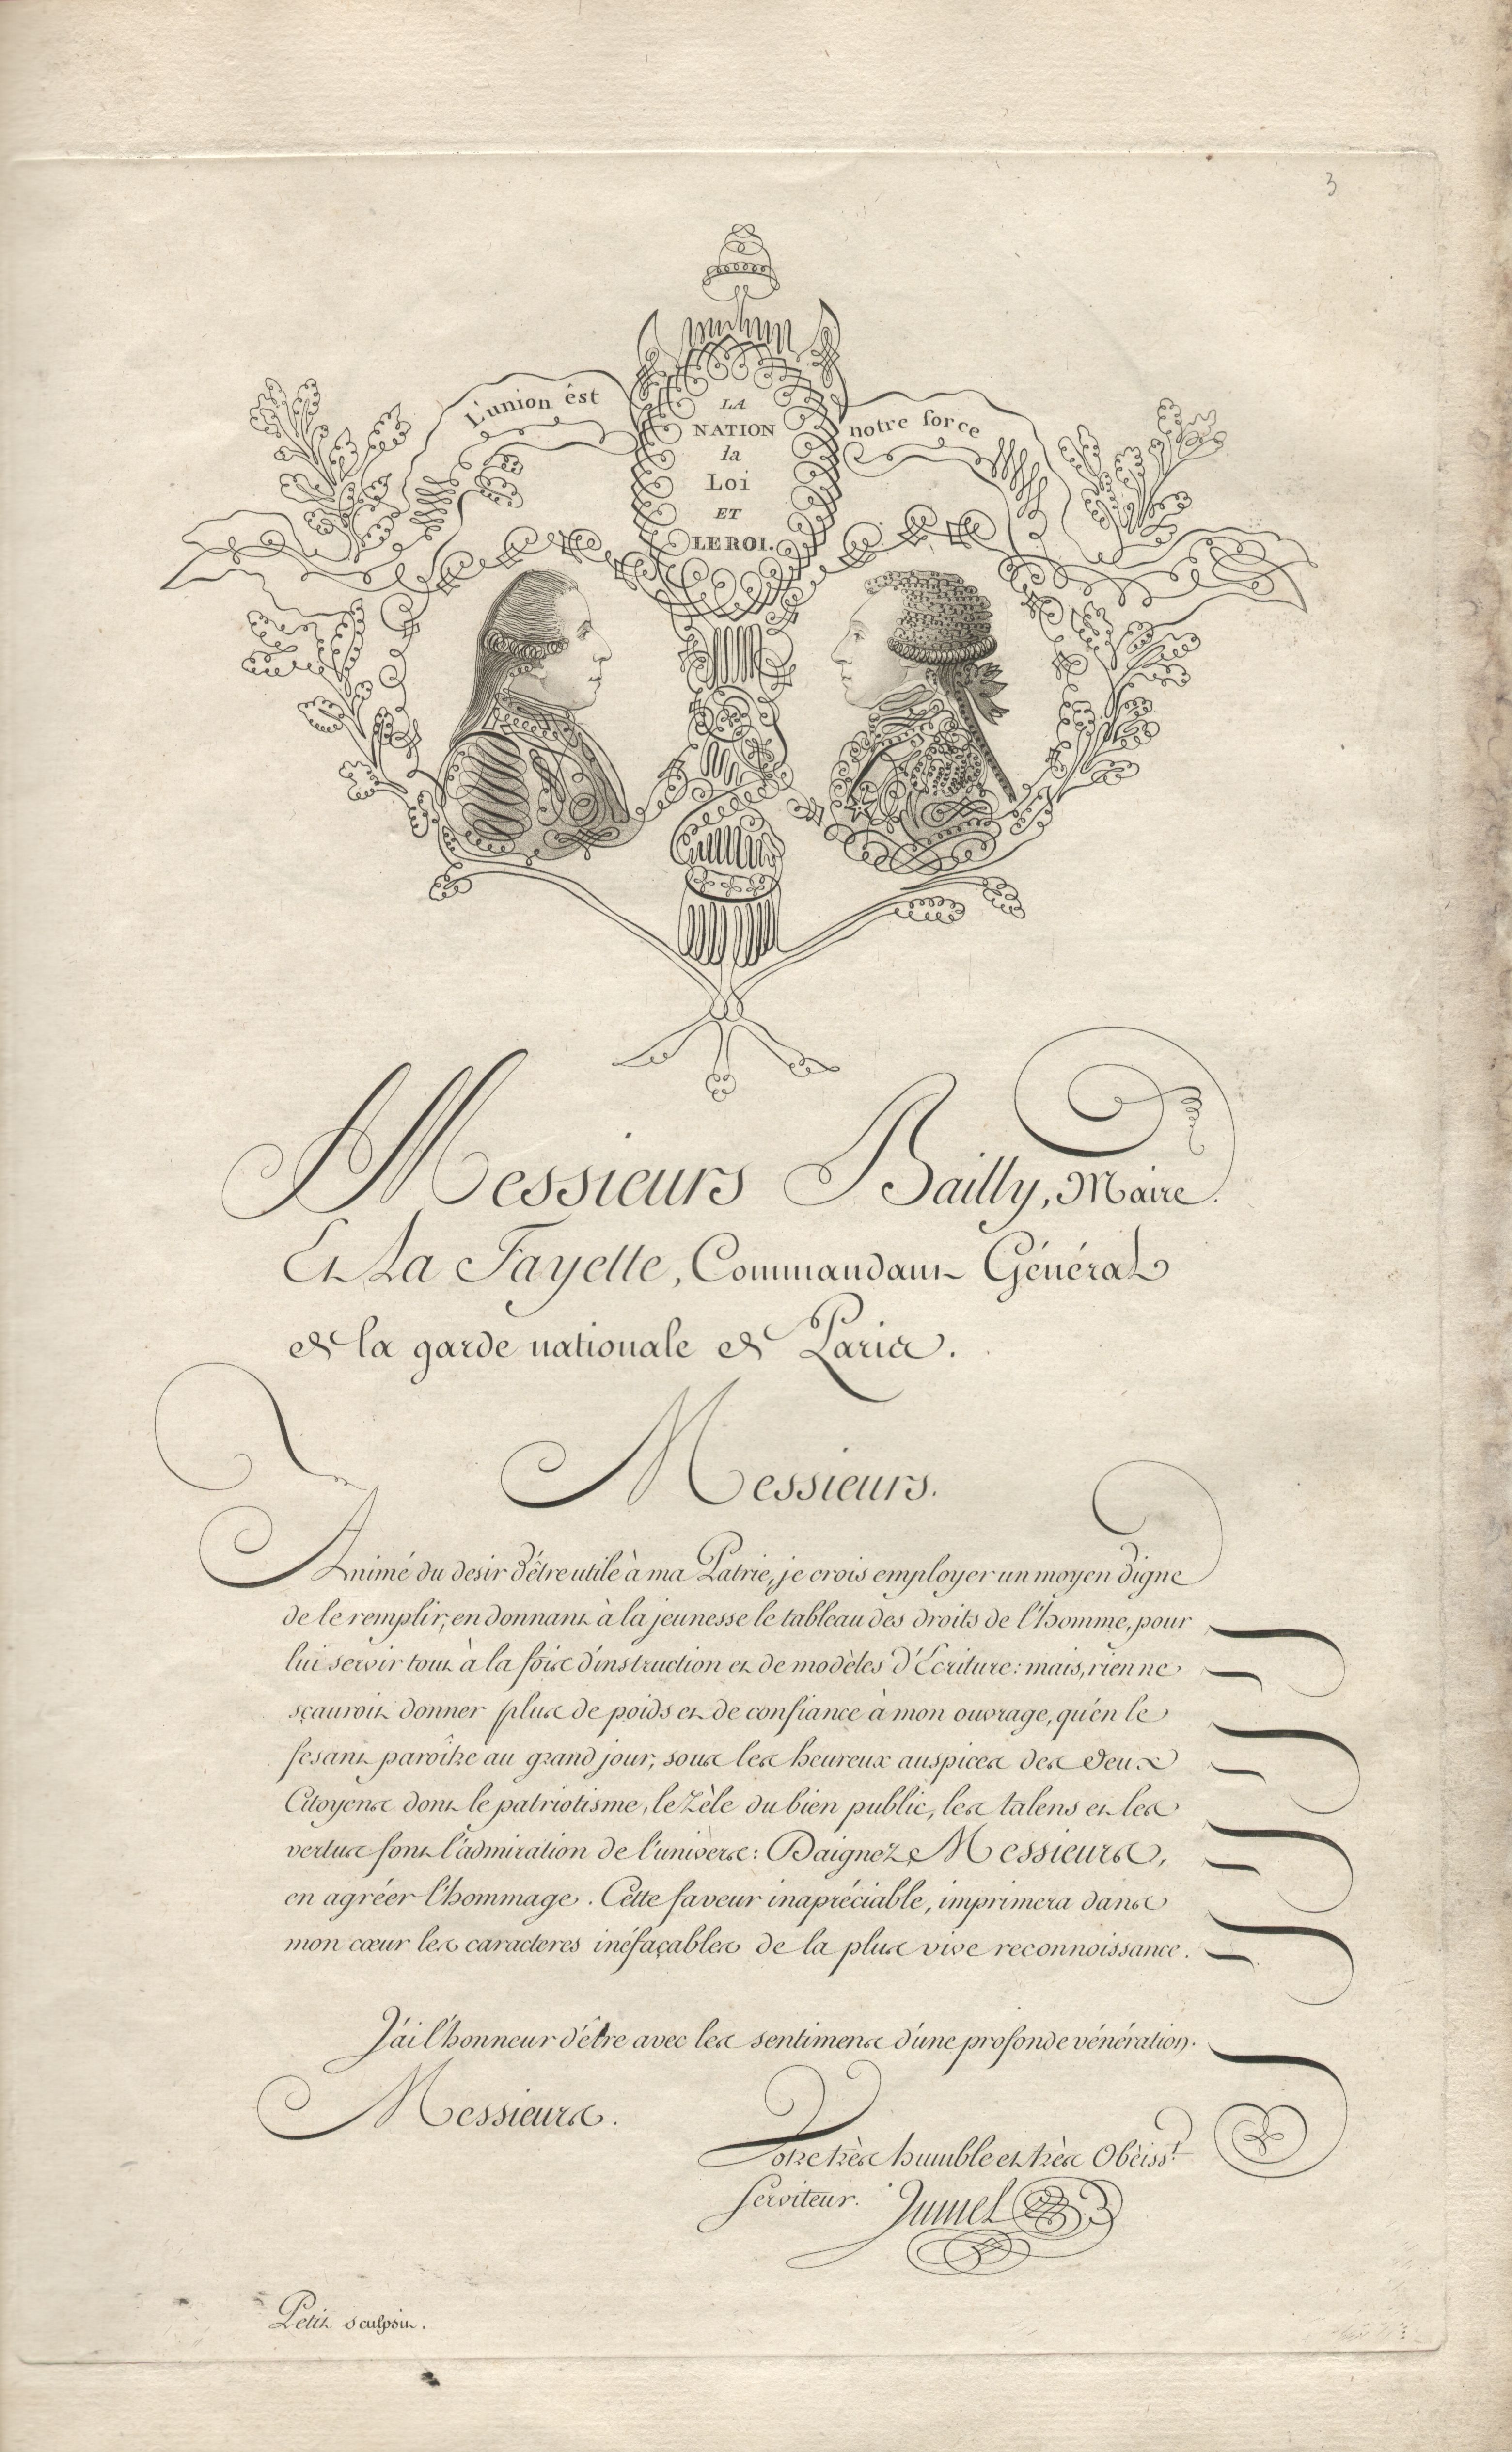 3
L'union êst
notre force
LA
NATION
la
Loi
ET
LE ROI.
Messieurs Bailly, Maire.
Et La Fayette, Commandant Général
de la garde nationale de Paris.
Messieurs.
Animé du desir d'être utile à ma Patrie, je crois employer un moyen digne
de le remplir, en donnant à la jeunesse le tableau des droits de l'homme, pour
lui servir tout à la fois d'instruction et de modèles d'Ecriture: mais, rien ne
sçauroit donner plus de poids et de confiance à mon ouvrage, qu'en le
fesant paroître au grand jour, sous les heureux auspices des deux
Citoyens dont le patriotisme, le Zèle du bien public, les talens et les
vertus font l'admiration de l'univers: Daignez, Messieurs,
en agréer l'hommage. Cette faveur inapréciable, imprimera dans
mon cœur les caracteres inéfaçables de la plus vive reconnoissance.
J'ai l'honneur d'être avec les sentimens d'une profonde vénération.
Messieurs.
Votre très humble et très Obèiss.t
Serviteur. Jumel
Petit sculpsit.